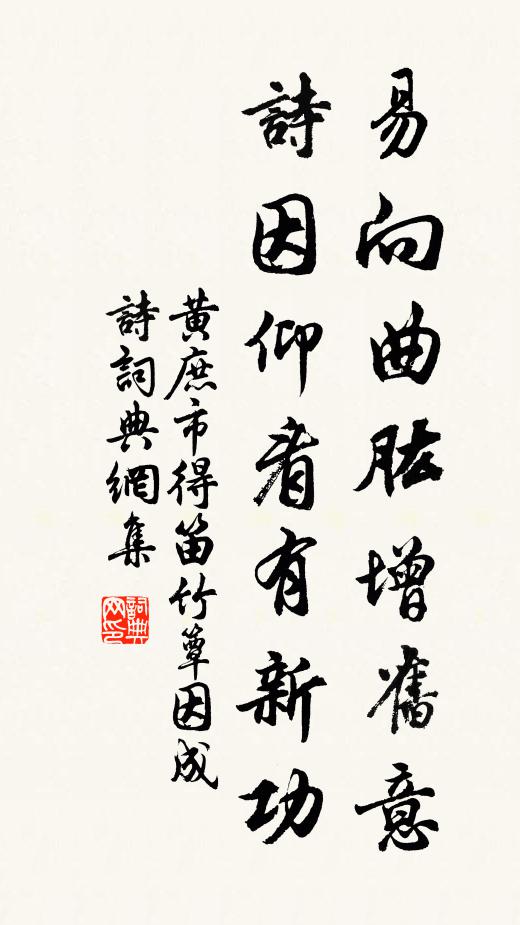 易向曲肱增舊意
詩因仰看有新功
黃庶市得笛竹簟因成
詩詞典網集
詞典
网印